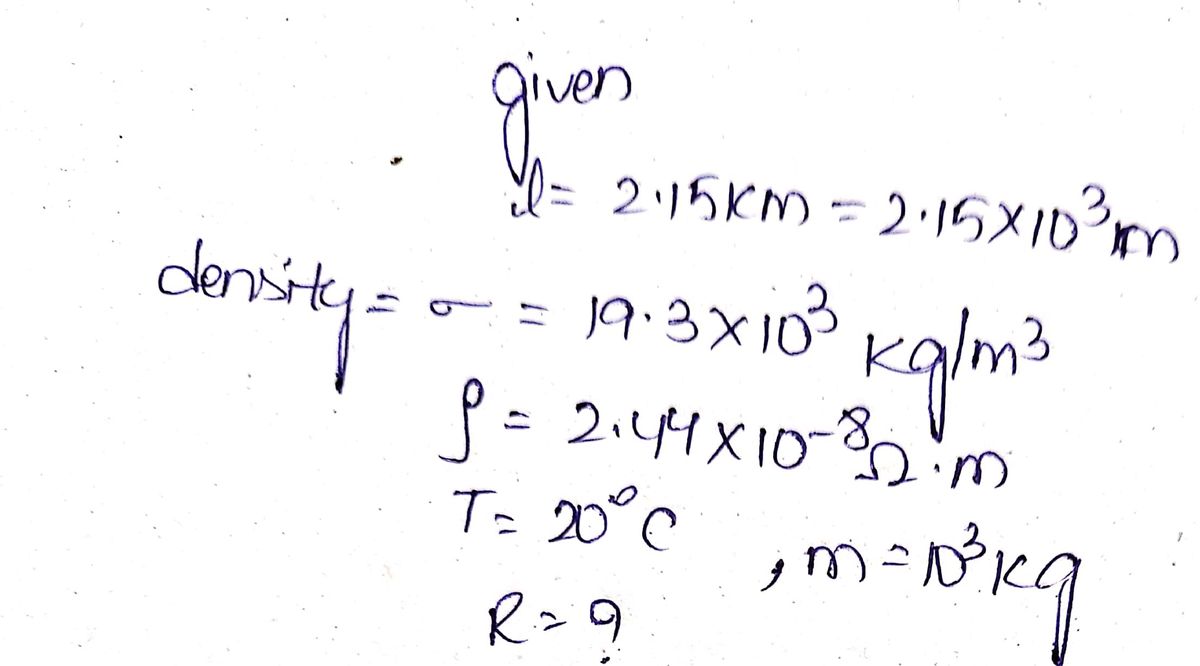 given
l = 2.15km = 2.15×10³m
density = σ = 19.3×10³ kg/m³
ρ = 2.44×10-⁸Ω.m
T = 20°C , m = 10³kg
R = ?